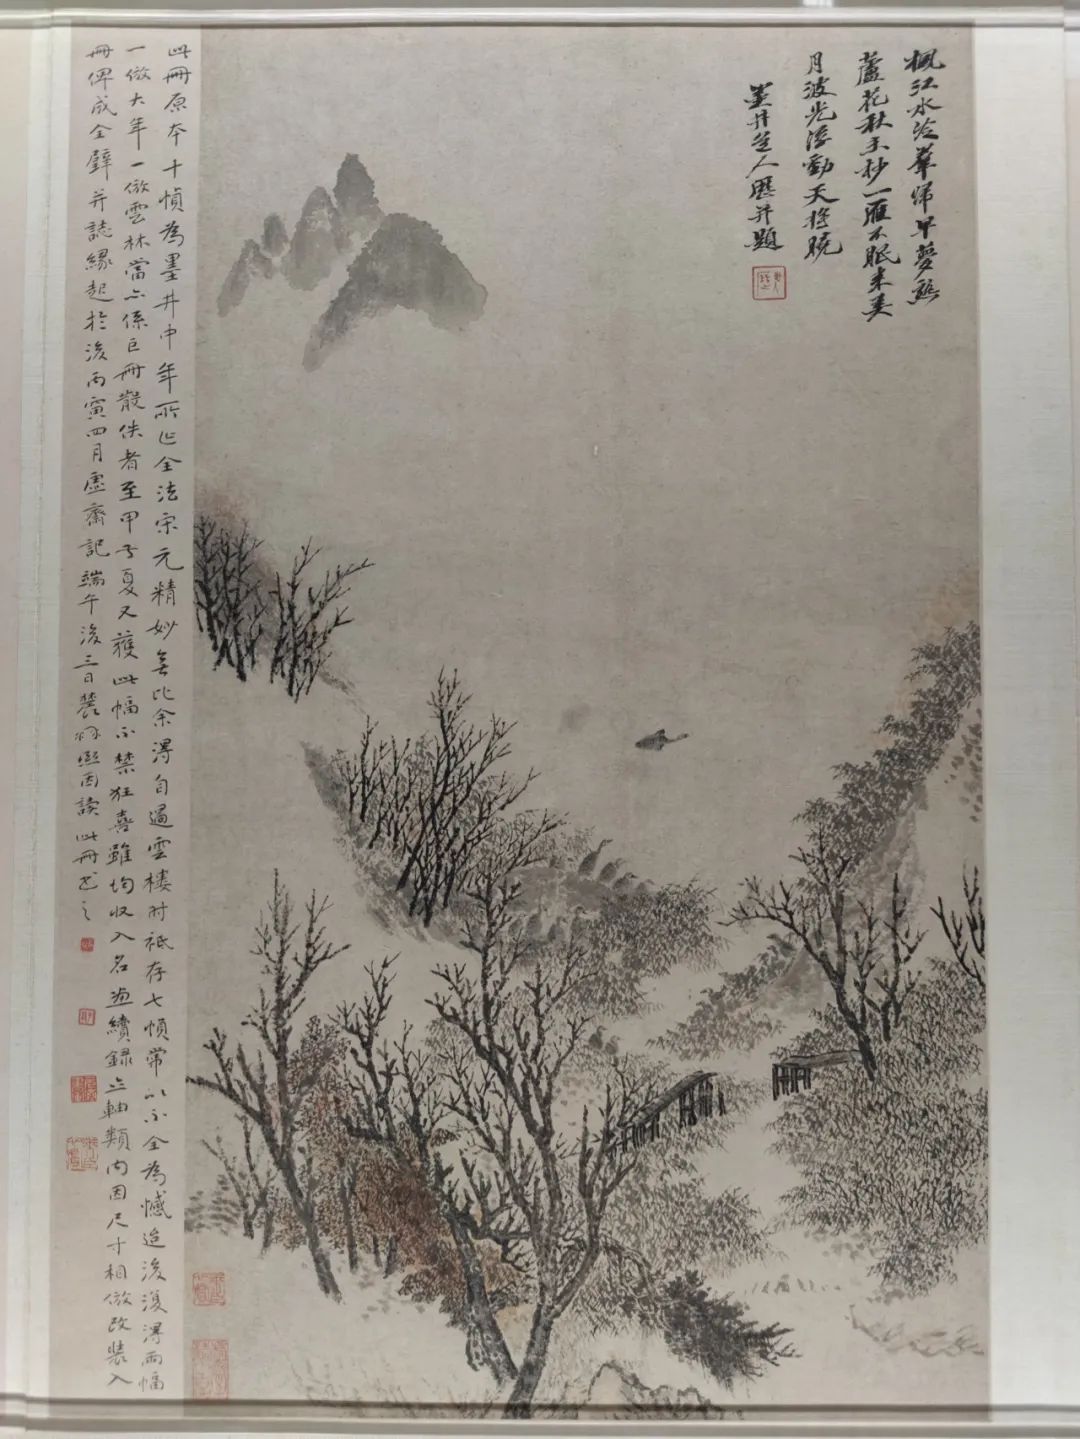 楓江水冷蓴歸早夢繞
蘆花秋玉杪一雁不眠來美
月波光浮動天將曉
墨井道人歷并題
此冊原本十幀為墨井中年所作全法宋元精妙無比余得自過雲樓時祗存七幀常以不全為憾迨後復得兩幅
一倣大年一倣雲林當亦係巨冊散佚者至甲子夏又獲此幅不禁狂喜雖均收入名畫續錄立軸類內因尺寸相倣改裝入
冊俾成全璧并誌緣起於後丙寅四月虛齋記端午後三日讀此冊書之